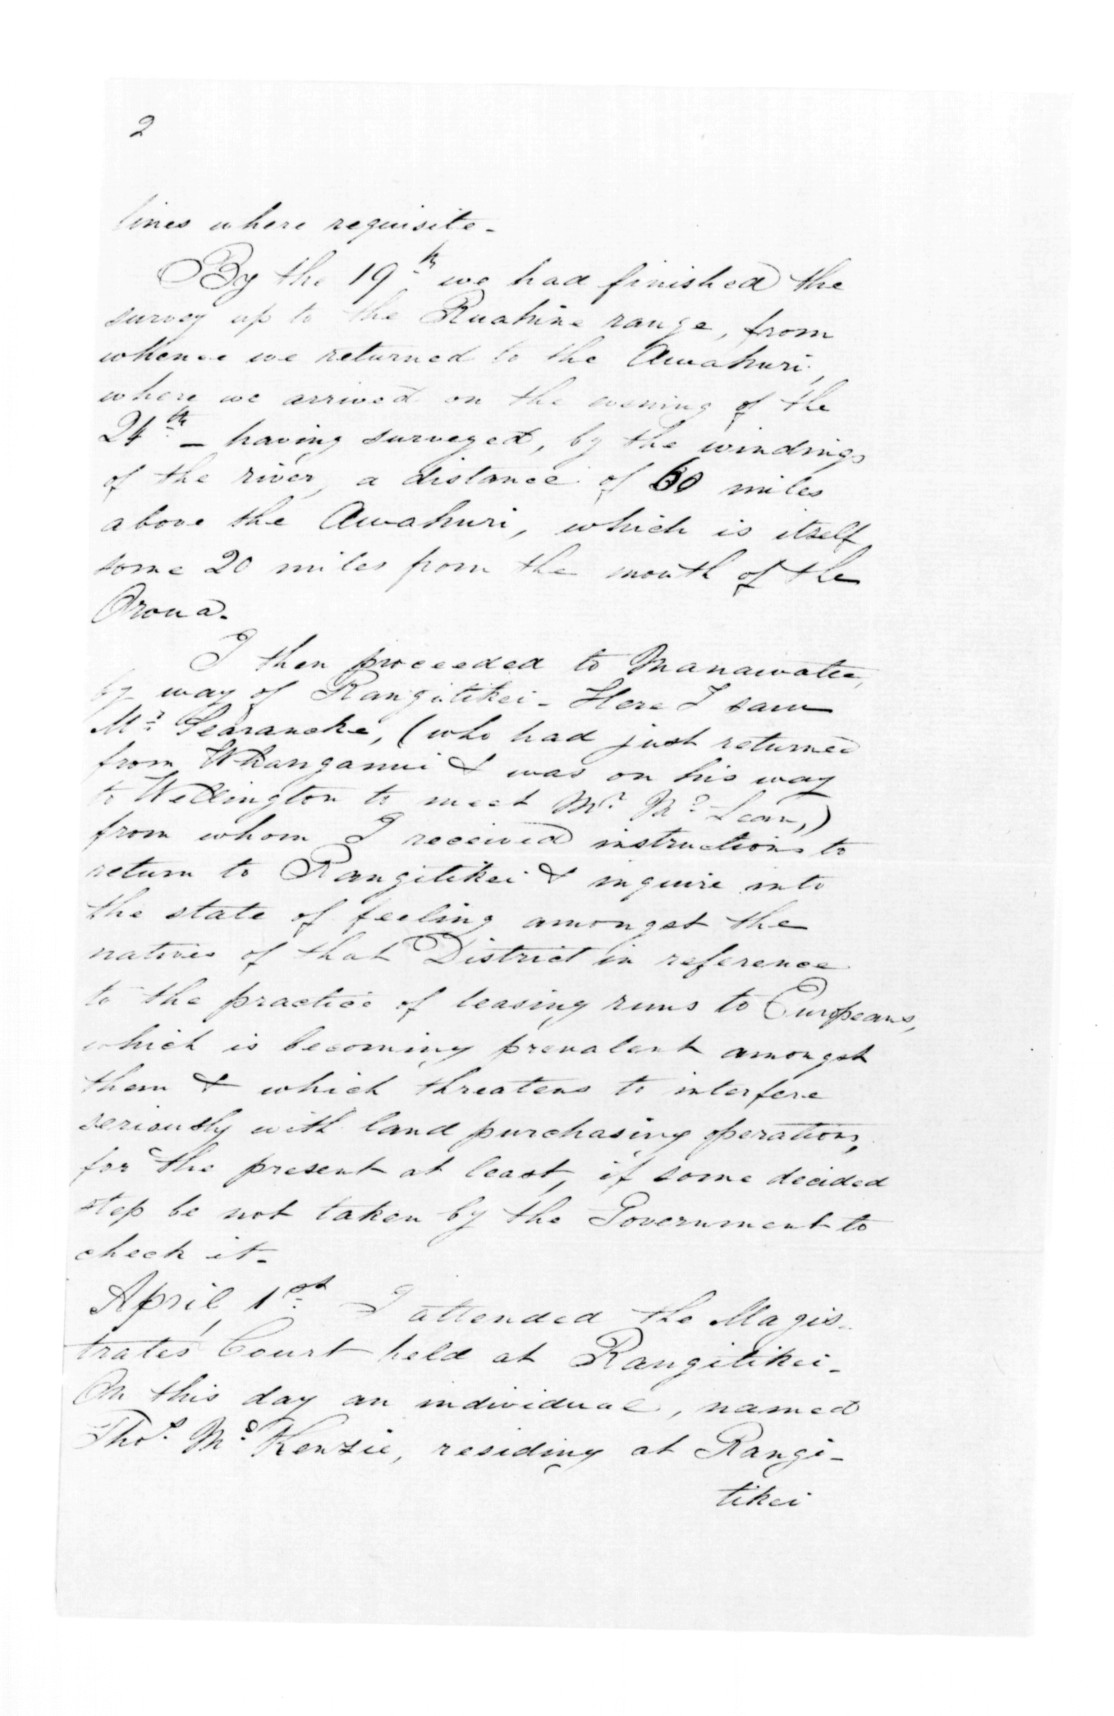 2
lines where requisite -
By the 19th we had finished the
survey up to the Ruahine range, from
whence we returned to the Awahuri,
where we arrived on the evening of the
24th - having surveyed, by the windings
of the river, a distance of 60 miles
above the Awahuri, which is itself
some 20 miles from the mouth of the
Oroua.
I then proceeded to Manawatu,
by way of Rangitikei - Here I saw
Mr Searancke, (who had just returned
from Whanganui & was on his way
to Wellington to meet Mr McLean,)
from whom I received instructions to
return to Rangitikei & inquire into
the state of feeling amongst the
natives of that District in reference
to the practice of leasing runs to Europeans,
which is becoming prevalent amongst
them & which threatens to interfere
seriously with land purchasing operations,
for the present at least, if some decided
step be not taken by the Government to
check it -
April, 1st I attended the Magis-
trates' Court held at Rangitikei -
On this day an individual, named
Thos. McKenzie, residing at Rangi-
tikei